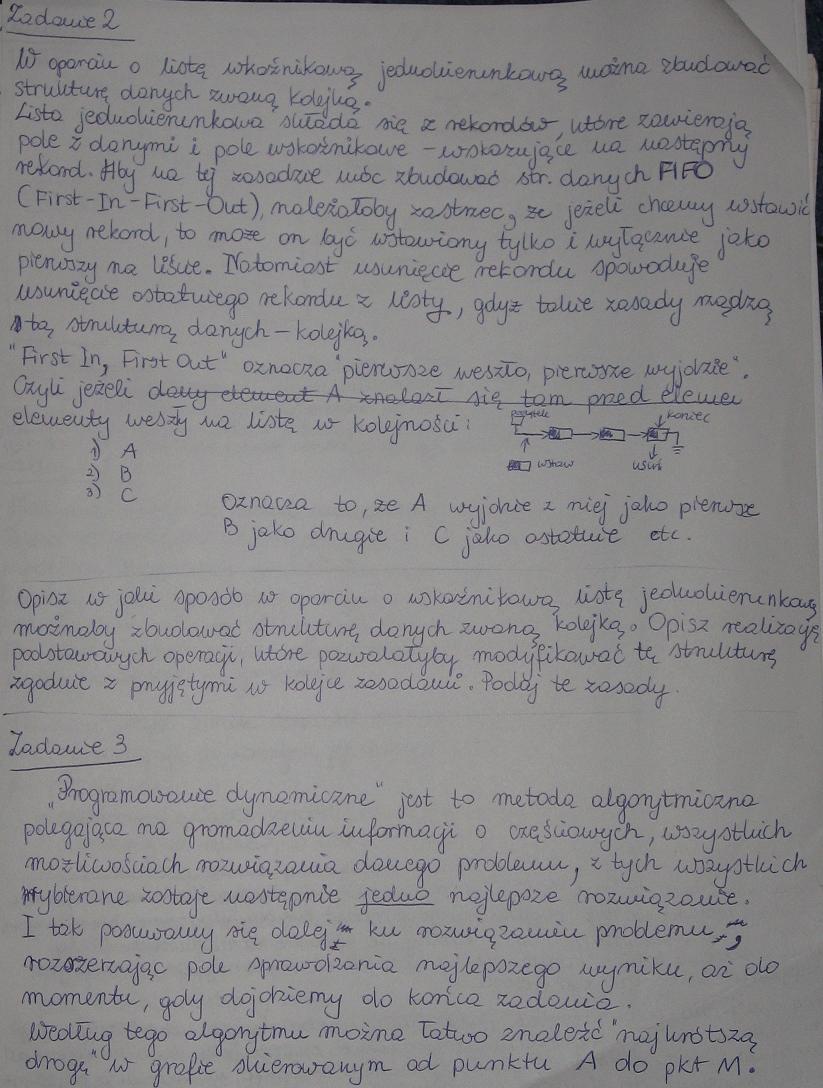 Zadanie 2
W oparciu o listę wkoźnikową jednokierunkową można zbudować
strukturę danych zwaną kolejką.
Lista jednokierunkowa składa się z rekordów, które zawierają
pole z danymi i pole wskaźnikowe – wskazujące na następny
rekord. Aby na tej zasadzie móc zbudować str. danych FIFO
(First-In-First-Out), należałoby zastrzec, że jeżeli chcemy wstawić
nowy rekord, to może on być wstawiony tylko i wyłącznie jako
pierwszy na liście. Natomiast usunięcie rekordu spowoduje
usunięcie ostatniego rekordu z listy, gdyż takie zasady rządzą
tą strukturą danych – kolejką.
"First In, First Out" oznacza "pierwsze weszło, pierwsze wyjdzie".
Czyli jeżeli dany element A znalazł się tam przed elemen
elementy weszły na listę w kolejności:
koniec
wstaw usuń
1) A
2) B
3) C
Oznacza to, że A wyjdzie z niej jako pierwsze
B jako drugie i C jako ostatnie etc.
Opisz w jaki sposób w oparciu o wskaźnikową listę jednokierunkową
możnaby zbudować strukturę danych zwaną kolejką. Opisz realizację
podstawowych operacji, które pozwalałyby modyfikować tę strukturę
zgodnie z przyjętymi w kolejce zasadami. Podaj te zasady.
Zadanie 3
„Programowanie dynamiczne" jest to metoda algorytmiczna
polegająca na gromadzeniu informacji o częściowych, wszystkich
możliwościach rozwiązania danego problemu, z tych wszystkich
wybierane zostaje następnie jedno najlepsze rozwiązanie.
I tak posuwamy się dalej ku rozwiązaniu problemu,
rozszerzając pole sprawdzania najlepszego wyniku, aż do
momentu, gdy dojdziemy do końca zadania.
Według tego algorytmu można łatwo znaleźć "najkrótszą
drogę" w grafie skierowanym od punktu A do pkt M.